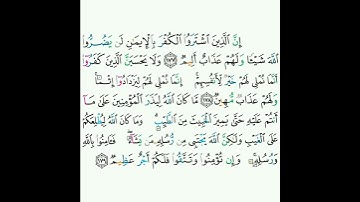 إِنَّ الَّذِينَ اشْتَرَوُا الْكُفْرَ بِالْإِيمَٰنِ لَن يَضُرُّوا
اللَّهَ شَيْئًا وَلَهُمْ عَذَابٌ أَلِيمٌ ﴿١٧٧﴾ وَلَا يَحْسَبَنَّ الَّذِينَ كَفَرُوا
أَنَّمَا نُمْلِي لَهُمْ خَيْرٌ لِّأَنفُسِهِمْ إِنَّمَا نُمْلِي لَهُمْ لِيَزْدَادُوا إِثْمًا
وَلَهُمْ عَذَابٌ مُّهِينٌ ﴿١٧٨﴾ مَّا كَانَ اللَّهُ لِيَذَرَ الْمُؤْمِنِينَ عَلَىٰ مَا
أَنتُمْ عَلَيْهِ حَتَّىٰ يَمِيزَ الْخَبِيثَ مِنَ الطَّيِّبِ وَمَا كَانَ اللَّهُ لِيُطْلِعَكُمْ
عَلَى الْغَيْبِ وَلَٰكِنَّ اللَّهَ يَجْتَبِي مِن رُّسُلِهِ مَن يَشَاءُ فَـَٔامِنُوا بِاللَّهِ
وَرُسُلِهِ وَإِن تُؤْمِنُوا وَتَتَّقُوا فَلَكُمْ أَجْرٌ عَظِيمٌ ﴿١٧٩﴾